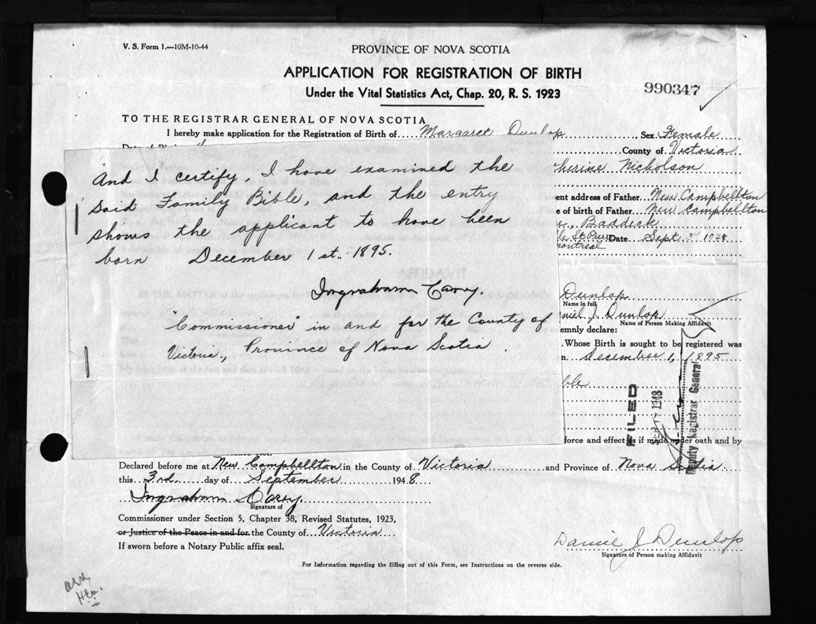 V. S. Form 1.—10M-10-44
PROVINCE OF NOVA SCOTIA
APPLICATION FOR REGISTRATION OF BIRTH
Under the Vital Statistics Act, Chap. 20, R. S. 1923
990347
TO THE REGISTRAR GENERAL OF NOVA SCOTIA
I hereby make application for the Registration of Birth of Margaret Dunlop, Sex Female
County of Victoria
And I certify, I have examined the
said Family Bible, and the entry
shows the applicant to have been
born December 1st. 1895.
Ingraham Carey.
"Commissioner" in and for the County of
Victoria, Province of Nova Scotia.
Nicholson
ent address of Father New Campbellton
e of birth of Father New Campbellton
Baddeck
Date Sept. 3 1948
Montreal
Dunlop
Name in full
niel J. Dunlop
Name of Person Making Affidavit
emnly declare:
Whose Birth is sought to be registered was
n December 1, 1895
ble
FILED
1948
Deputy Registrar General
force and effect as if made under oath and by
Declared before me at New Campbellton in the County of Victoria and Province of Nova Scotia
this 3rd. day of September 1948.
Ingraham Carey.
Signature of
Commissioner under Section 5, Chapter 38, Revised Statutes, 1923,
or Justice of the Peace in and for the County of Victoria
If sworn before a Notary Public affix seal.
Daniel J Dunlop
Signature of Person making Affidavit
For Information regarding the filling out of this Form, see Instructions on the reverse side.